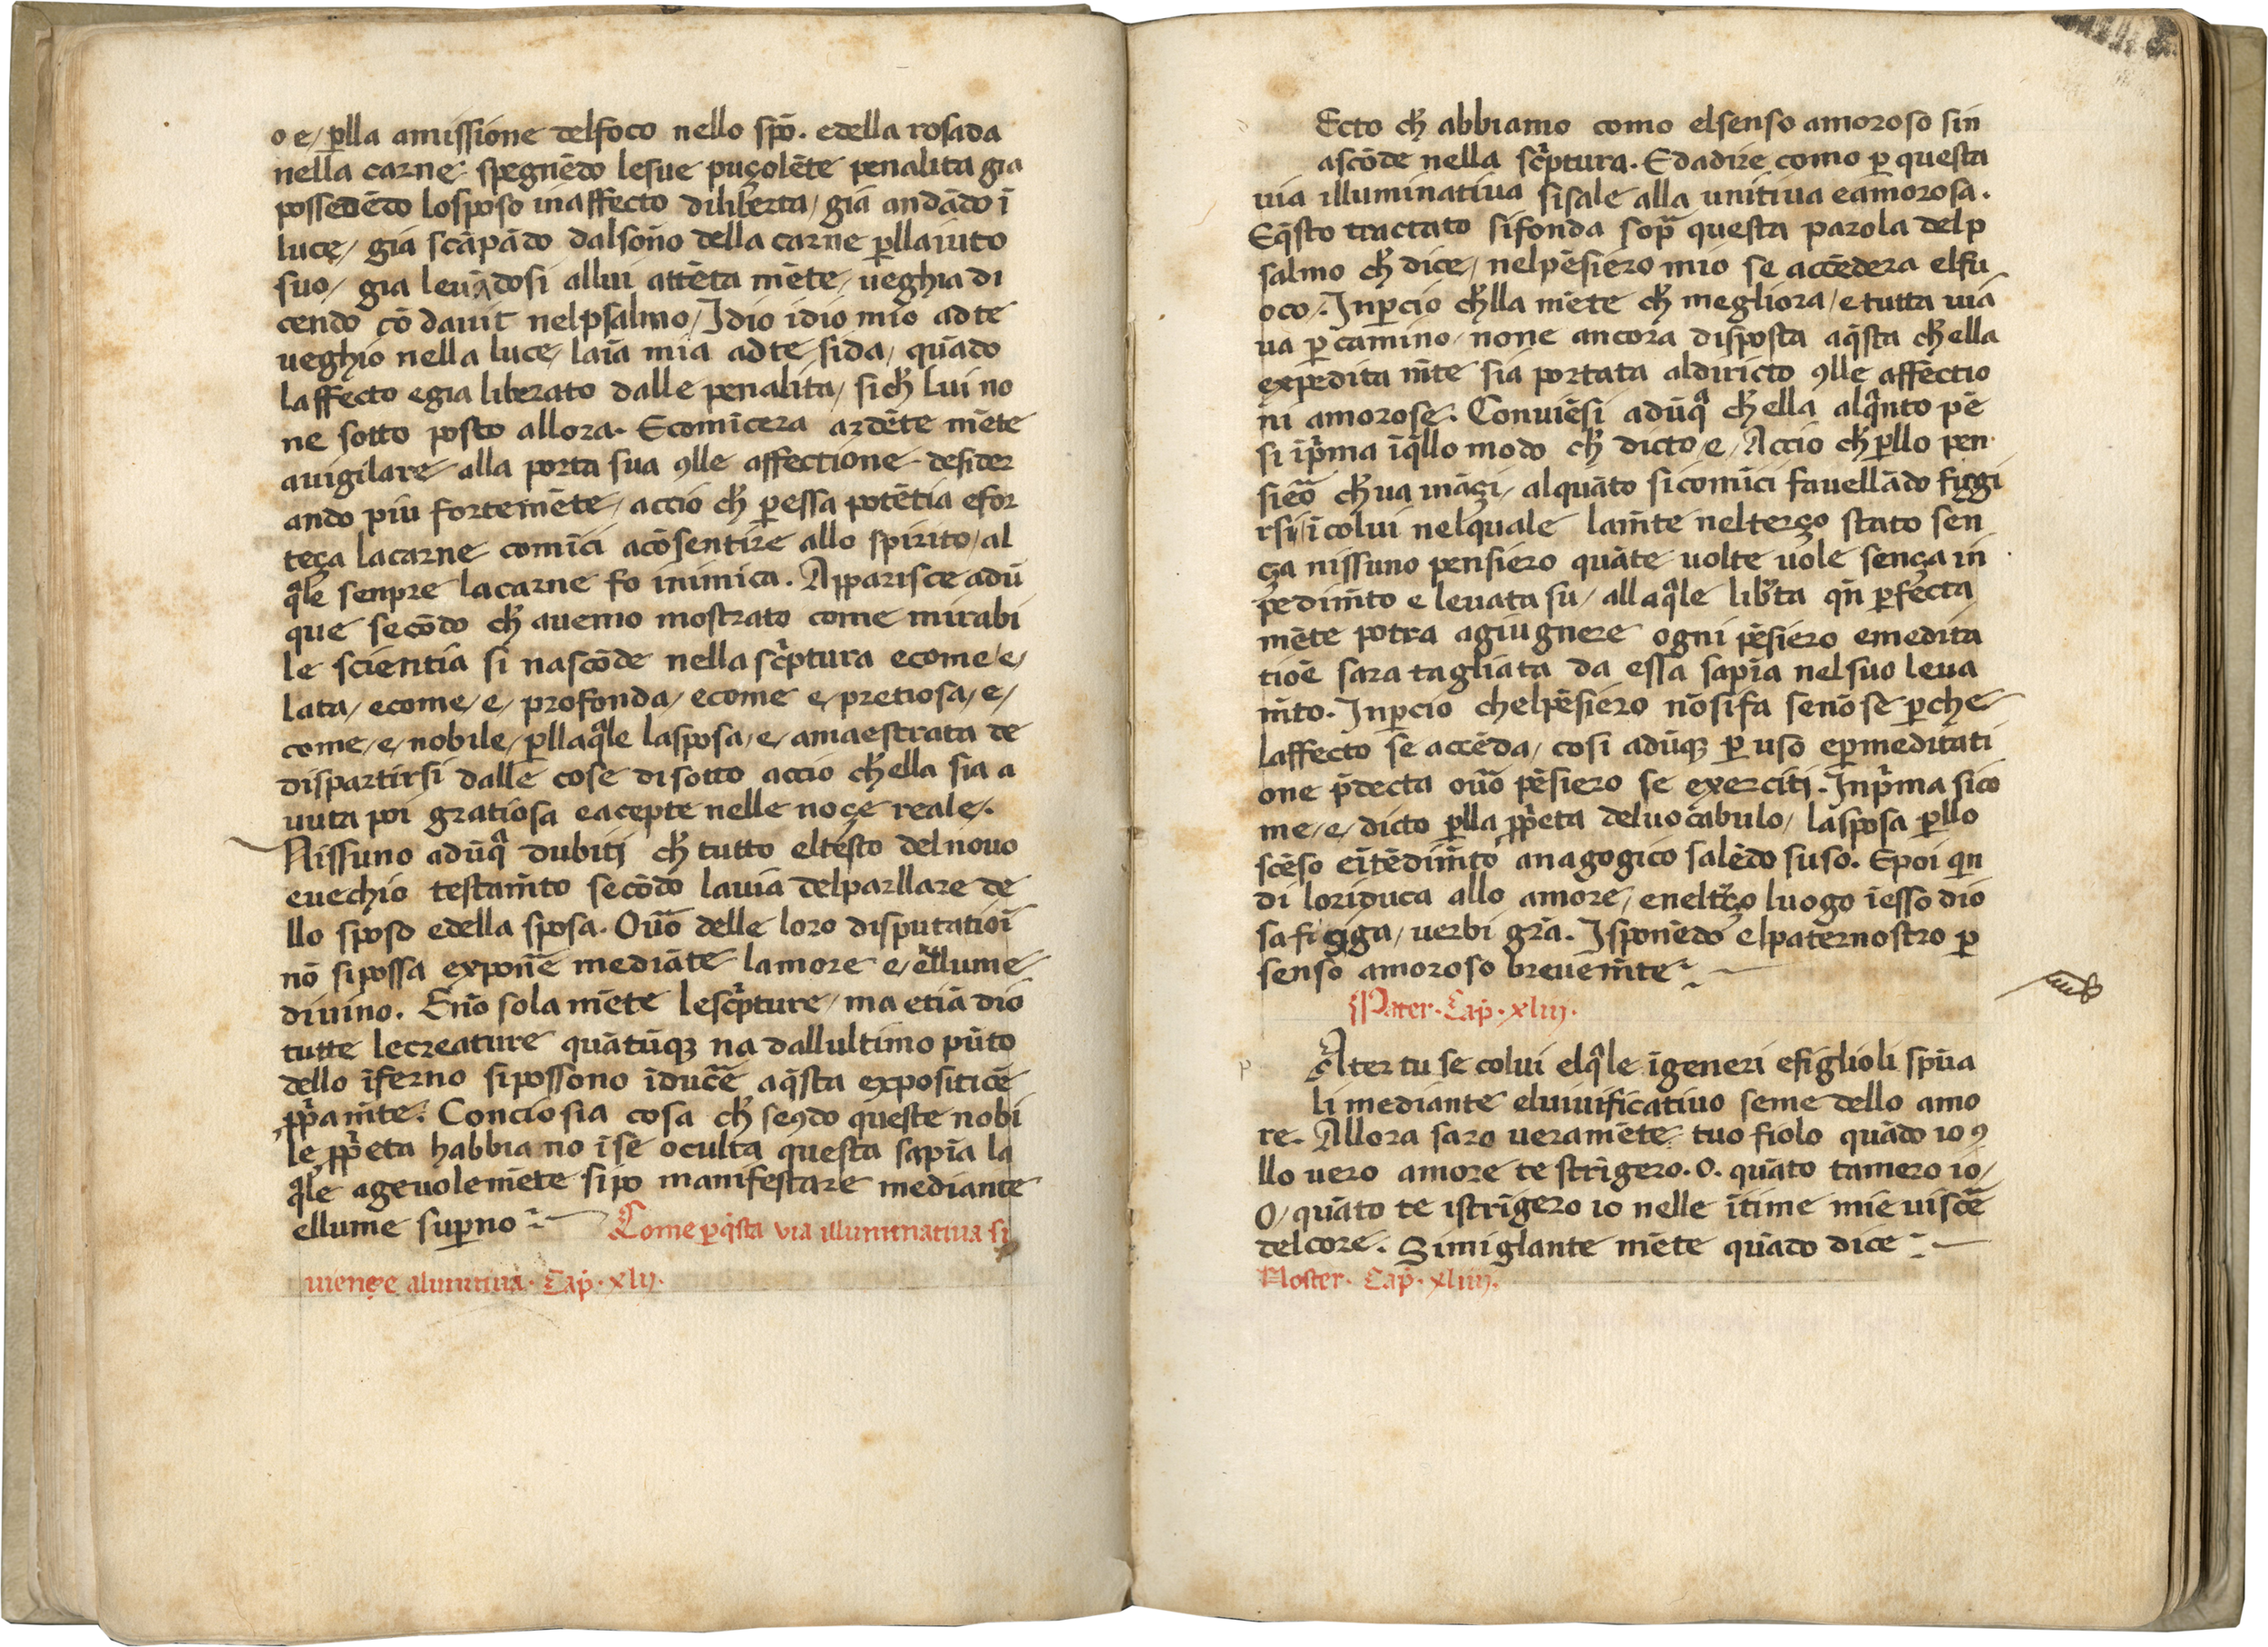 o e, ꝑlla amissione delfoco nello spō. edella rosada
nella carne spegnēdo lesue puçolēte penalita gia
possedēdo losposo inaffecto diliberta / gia andādo ī
luce / gia scāpādo dalsoño della carne ꝑllaiuto
suo / gia leuādosi allui attēta mēte / ueghia di
cendo cō dauit nelpsalmo / Idio idio mio adte
ueghio nella luce / laīa mia adte sida / quādo
laffecto egia liberato dalle penalita / sicħ lui no
ne sotto posto allora. Ecomīcera ardēte mēte
auigilare alla porta sua ꝯlle affectione desider
ando piu fortemēte / accio cħ ꝑessa potētia efor
teça lacarne comīci acōsentire allo spirito / al
q̄le senpre lacarne fo inimica. Apparisce adū
que secōdo cħ auemo mostrato come mirabi
le scientia si nascōde nella sc̄ptura ecome / e /
lata / ecome / e / profonda / ecome e / pretiosa / e /
come / e / nobile / ꝑllaq̄le lasposa / e / amaestrata de
dispartirsi dalle cose disotto accio cħella sia a
uuta poi gratiosa eacepte nelle noçe reale.
Nissuno adūq̄ dubitj cħ tutto eltesto delnouo
euechio testam̄to secōdo lauia delparllare de
llo sposo edella sposa. Oūo delle loro disputatiōi
nō sipossa expon̄e mediāte lamore e / ellume
diuino. Enō sola mēte lesc̄pture / ma etiā dio
tutte lecreature quātūqꝫ na dallultimo pūto
dello īferno sipossono īduc̄e aq̄sta expositiōe
ꝓp̄am̄te. Conciosia cosa cħ seꝯdo queste nobi
le ꝓp̄eta habbiano īse oculta questa sapīa la
q̄le ageuolemēte sipo manifestare mediante
ellume suꝑno Come ꝑq̄sta via illuminatiua si
uienge alunitiua. Cap̄. xlij.
Ecto cħ abbiamo como elsenso amoroso sin
ascōde nella sc̄ptura. Edadire como ꝑ questa
uia illuminatiua sisale alla unitiua eamorosa.
Eq̄sto tractato sifonda sop̄a questa parola delp
salmo cħ dice / nelpēsiero mio se accēdera elfu
oco /. Inꝑcio cħlla mēte cħ megliora / e tutta uia
ua ꝑ camino / none ancora disposta aq̄sta cħella
expedita m̄te sia portata aldiricto ꝯlle affectio
ni amorose. Conuiēsi adūq̄ cħella alq̄nto pē
si īp̄ma īq̄llo modo cħ dicto / e / Accio cħ ꝑllo pen
sieō cħua ināçi / alquāto sicomīci fauellādo figgi
rsi / ī colui nelquale lam̄te nelterço stato sen
ça nissuno pensiero quāte uolte uole sença in
pedim̄to e leuata su / allaq̄le lib̄ta qn̄ ꝑfecta
mēte potra agiugnere ogni pēsiero emedita
tiōe sara tagliata da essa sapīa nelsuo leua
m̄to. Inꝑcio chelpēsiero nōsifa senōse ꝑche
laffecto se accēda / cosi adūqꝫ ꝑ uso eꝑmeditati
one p̄decta oūo pēsiero se exercitj. Inp̄ma sico
me / e / dicto ꝑlla ꝓp̄eta deluocabulo / lasposa ꝑllo
scēso eītēdim̄to anagogico salēdo suso. Epoi qn̄
di loriduca allo amore / enelt̄ço luogo īesso dio
safigga / uerbi grā. Isponēdo elpaternostro ꝑ
senso amoroso breuem̄te
Pater. Cap̄. xliij.
Ater tu se colui elq̄le īgeneri efiglioli spūa
li mediante eluiuificatiuo seme dello amo
re. Allora saro ueramēte tuo fiolo quādo io ꝯ
llo uero amore te strīgero. O. quāto tamero io /
O / quāto te istrīgero io nelle ītime mie uisc̄e
delcore. Simiglante mēte quādo dice
Noster. Cap̄. xliiij.